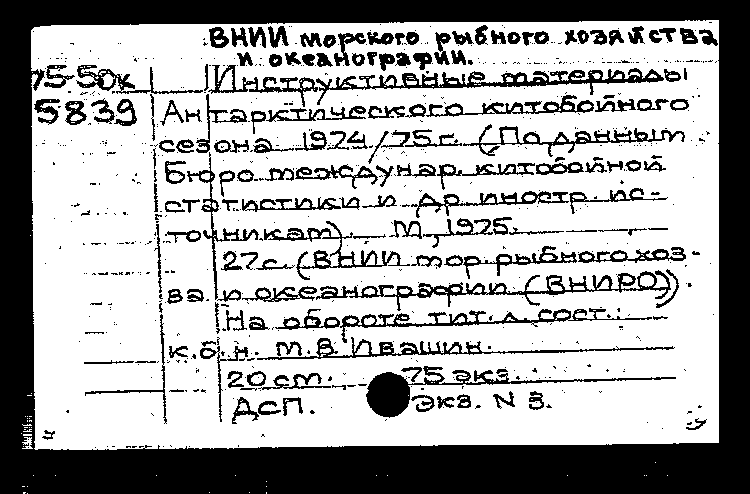 ВНИИ морского рыбного хозяйства
и океанографии.
75-50к Инструктивные материалы
5839 Антарктического китобойного
сезона 1974/75 г. (По данным
Бюро междунар. китобойной
статистики и др. иностр. ис-
точникам). М., 1975.
27 с. (ВНИИ мор. рыбного хоз-
ва и океанографии (ВНИРО)).
На обороте тит. л. сост.:
к.б.н. М.В. Ивашин.
20 см. 75 экз.
ДСП. Экз. N 3.